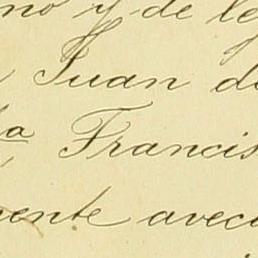 no y de le
Juan de
a Francis
ente avec